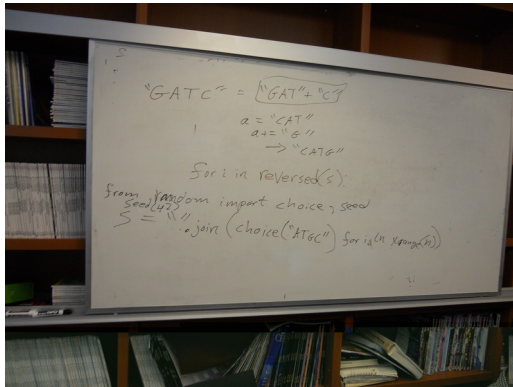 "GATC" = "GAT" + "C"
a = "CAT"
a += "G"
→ "CATG"
for i in reversed(s):
from random import choice, seed
seed(42)
S = "".join(choice("ATGC") for i in xrange(n))